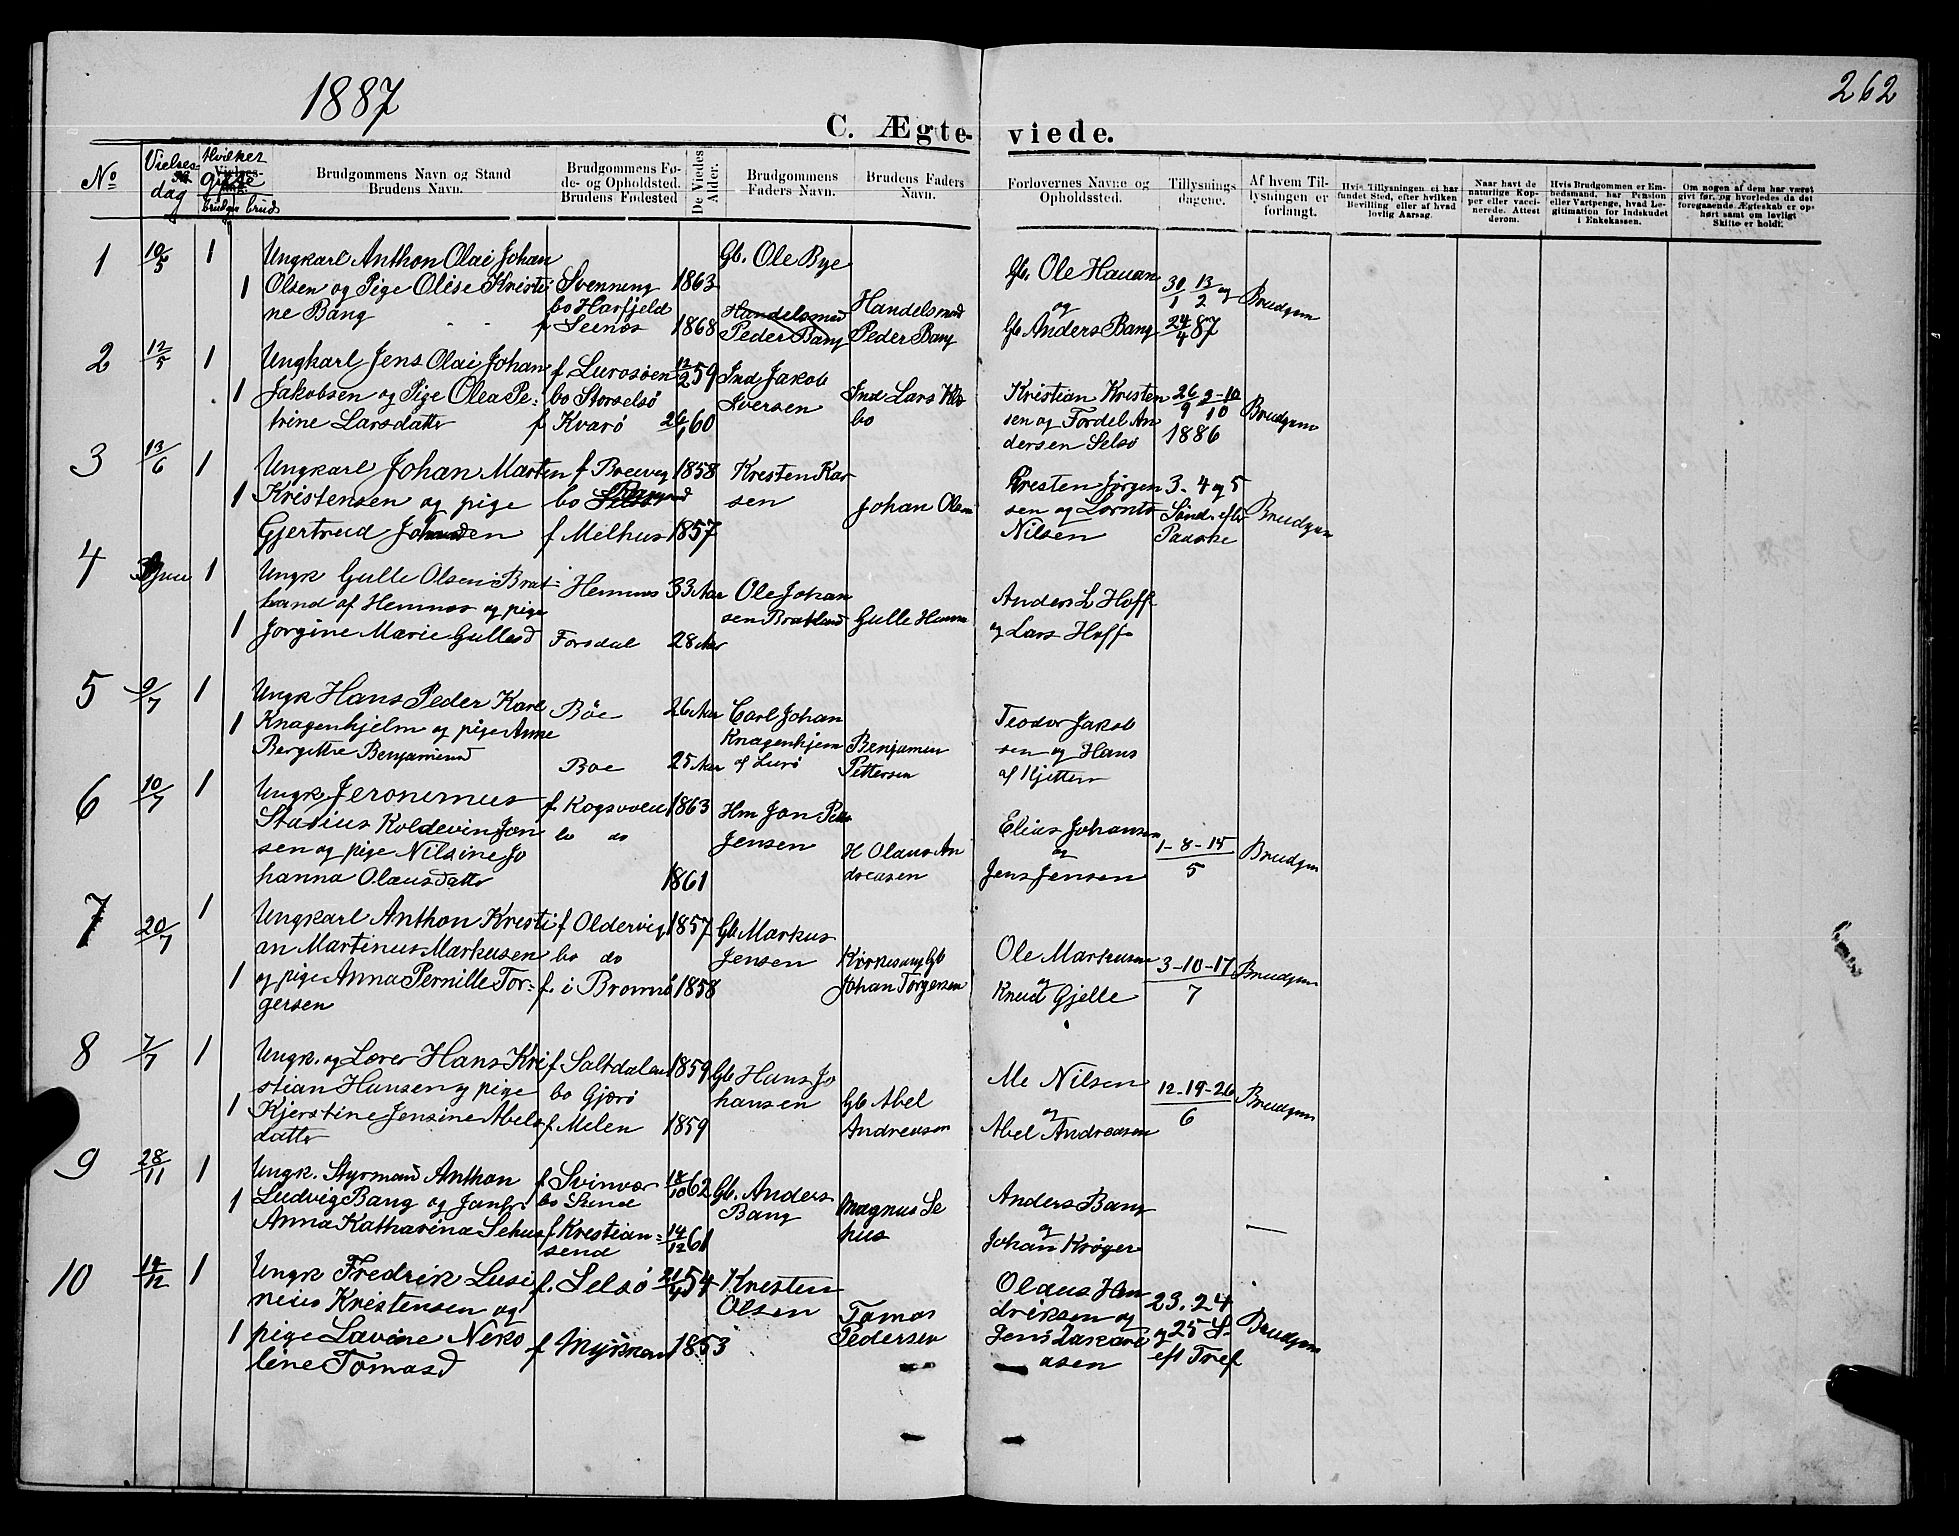 1887
262
C. Ægteviede.
No
Vielses-
dag
Hvilket
Gifte
brudgm brud
Brudgommens Navn og Stand
Brudens Navn.
Brudgommens Fø-
de- og Opholdsted.
Brudens Fødested
De Viedes
Alder.
Brudgommens
Faders Navn.
Brudens Faders
Navn.
Forlovernes Navne og
Opholdssted.
Tillysnings
dagene.
Af hvem Til-
lysningen er
forlangt.
Hvis Tillysningen ei har
fundet Sted, efter hvilken
Bevilling eller af hvad
lovlig Aarsag.
Naar havt de
naturlige Kop-
per eller vacci-
nerede. Attest
derom.
Hvis Brudgommen er Em-
bedsmand, har Pension
eller Vartpenge, hvad Le-
gitimation for Indskudet
i Enkekassen.
Om nogen af dem har været
gift før, og hvorledes da det
foregaaende Ægteskab er op-
hørt samt om lovligt
Skifte er holdt.
1 10/5 1 1
Ungkarl Anthon Olai Johan
Olsen og Pige Olise Kristi-
ne Bang
Svenning
bo Harfjeld
f Seenes
1863
1868
Gb. Ole Bye
Handelsmd
Peder Bang
Handelsmd
Peder Bang
Gb. Ole Hauan
og
Gb Anders Bang
30/1 13/2 og
24/4 87
Brudgm
2 12/5 1 1
Ungkarl Jens Olai Johan
Jakobsen og Pige Olea Pe-
trine Larsdattr
f Lurosøen
bo Storselsö
f Kvarö
12/2 59
26/1 60
Ind Jakob
Iversen
Ind Lars
bo
Kristian Kristen
sen og Fordel An
dersen Selsö
26/9 2-10/10
1886
Brudgm
3 13/6 1 1
Ungkarl Johan Marten
Kristensen og pige
Gjertrud
f Breivig
bo
f Melhus
1858
1857
Kresten Kar
sen
Johan Olsen
Kresten Jörgen
sen og Lornts
Nilsen
3. 4 og 5
Sönd. eftr
Paaske
Brudgm
4 1 1
Ungk Gulle Olsen Brat
land af Hemnes og pige
Jorgine Marie Gullesd
Hemnes
Forsdal
33 Aar
28 Aar
Ole Johan
sen Bratland
Gulle
Anders L Hoff
og Lars Hoff
5 9/7 1 1
Ungk Hans Peder Karl
Knagenhjelm og pige Anne
Bergitte Benjamind
Böe
Boe
26 Aar
25 Aar
Carl Johan
Knagenhjem
af Lurö
Benjamin
Pettersen
Teodor Jakob
sen og Hans
6 10/7 1
Ungk Jeronemus
Stasius Koldevin Jen
sen og pige Nilsine Jo
hanna Olausdattr
f. Kogsvoen
bo do
1863
1861
Hm Jan Peter
Jensen
H Olaus An
dreasen
Elias Johansen
og
Jens Jensen
1-8-15
5
Brudgm
7 20/7 1 1
Ungkarl Anthon Kresti
an Martinus Markusen
og pige Anna Pernille Tor-
gersen
f Oldervig
bo do
f. i Bromsö
1857
1858
Gb Markus
Jensen
Kirkesang Gb
Johan Torgersen
Ole Markusen
og
Knud Gjelle
3-10-17
7
Brudgm
8 7/7 1 1
Ungk. og Lærer Hans Kri
stian Hansen og pige
Kjerstine Jensine Abels
dattr
f Saltdalen
bo Gjærö
f Melen
1859
1859
Gb Hans Jo
hansen
Gb Abel
Andreasen
Me Nilsen
og
Abel Andreasen
12-19-26
6
Brudgm
9 28/11 1 1
Ungk. Styrmand Anthon
Ludvig Bang og Jomfr
Anna Katharina Sehus
f Svinvær
bo Sund
f Kristian-
sund
18/10 62
14/12 61
Gb. Anders
Bang
Magnus Se
hus
Anders Bang
og
Johan Krøger
10 14/12 1 1
Ungk Fredrik Lusi
neius Kristensen og
pige Lavine Neko
line Tomasd
f. Selsö
f
54
1853
Kresten
Olsen
Tomas
Pedersen
Olaus Hen
driksen og
Jens Zakari
asen
23. 24
og 25 S.
eft Tref
Brudgm